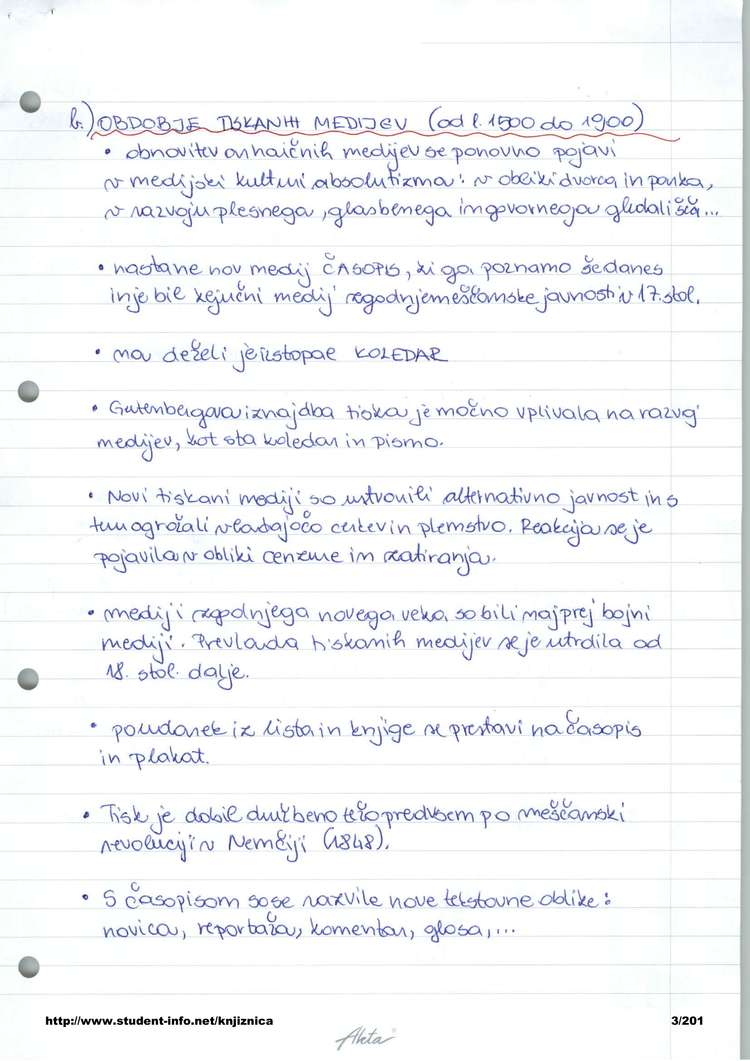 b.) OBDOBJE TISKANIH MEDIJEV (od l. 1500 do 1900)
• obnovitev arhaičnih medijev se ponovno pojavi
v medijski kulturi absolutizma: v obliki dvorca in parka,
v razvoju plesnega, glasbenega in govornega gledališča...
• nastane nov medij ČASOPIS, ki ga poznamo še danes
in je bil ključni medij zgodnjemeščanske javnosti v 17. stol.
• na deželi je izstopal KOLEDAR
• Gutenbergova iznajdba tiska je močno vplivala na razvoj
medijev, kot sta koledar in pismo.
• Novi tiskani mediji so ustvarili alternativno javnost in s
tem ogrožali vladajočo cerkev in plemstvo. Reakcija se je
pojavila v obliki cenzure in zatiranja.
• mediji zgodnjega novega veka so bili najprej bojni
mediji. Prevlada tiskanih medijev se je utrdila od
18. stol. dalje.
• poudarek iz lista in knjige se prestavi na časopis
in plakat.
• Tisk je dobil družbeno težo predvsem po meščanski
revoluciji v Nemčiji (1848).
• S časopisom so se razvile nove tekstovne oblike:
novica, reportaža, komentar, glosa,...
http://www.student-info.net/knjiznica
3/201
Akta